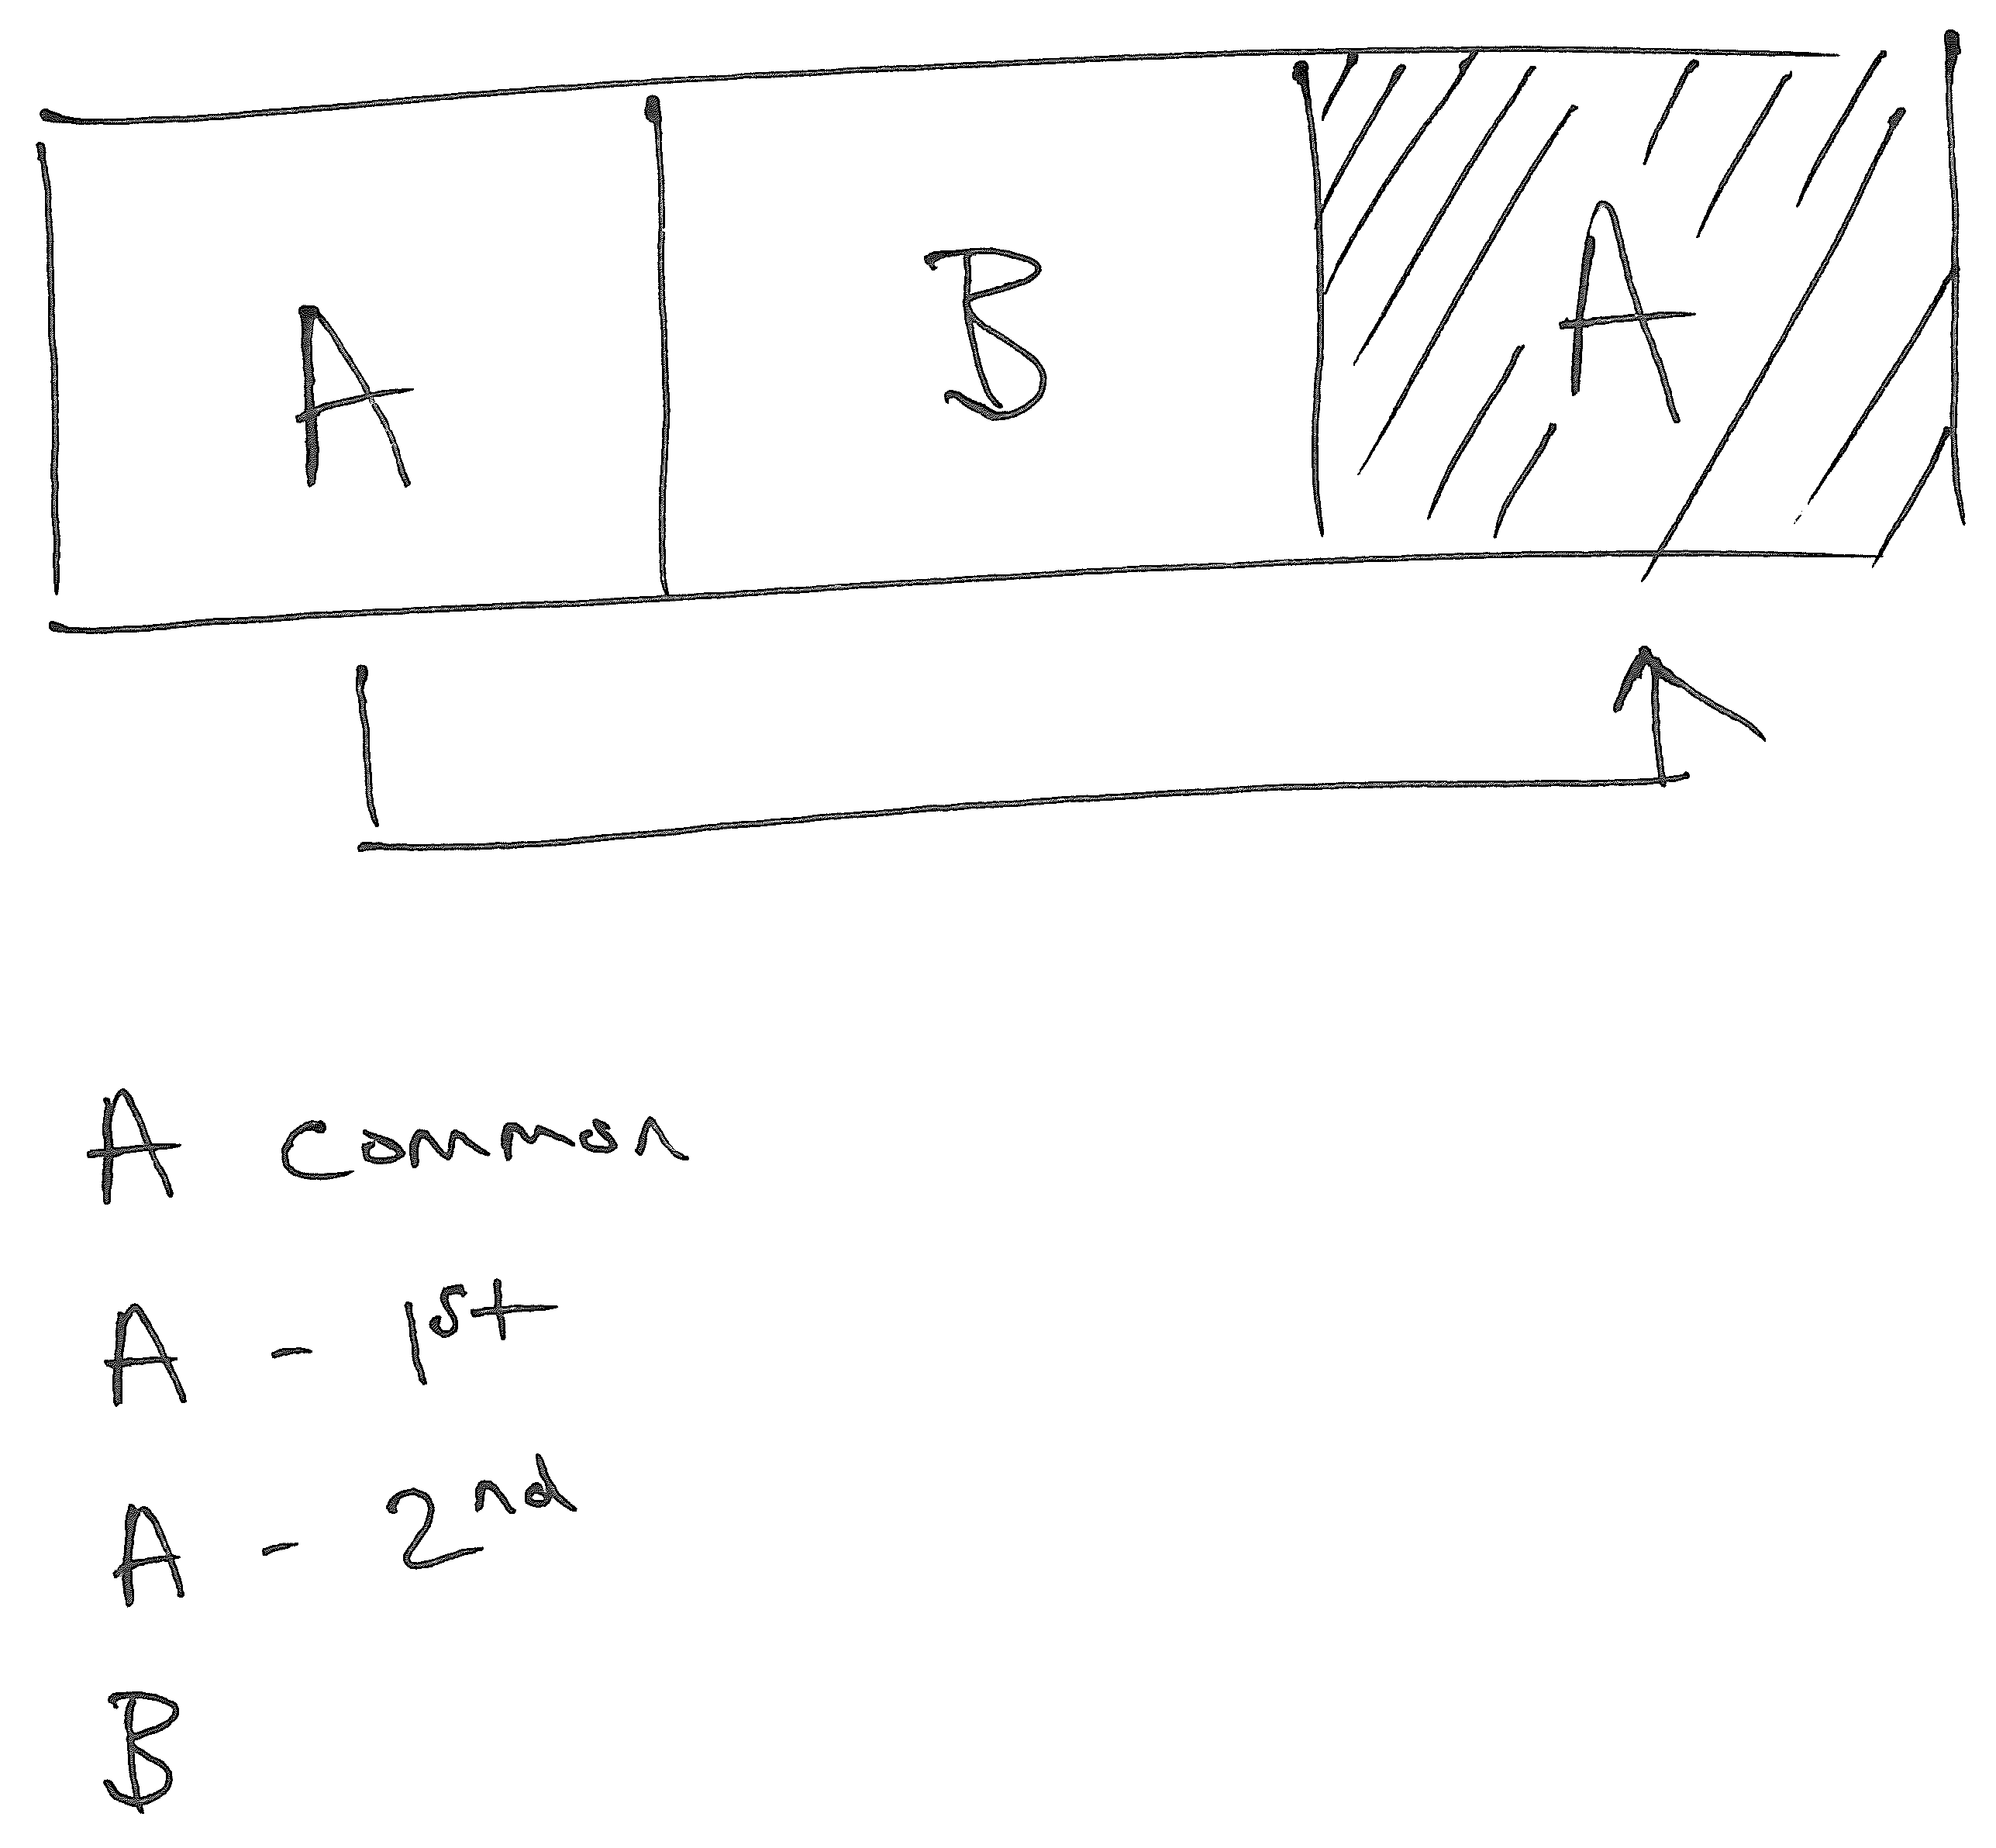 A B A
A common
A - 1st
A - 2nd
B